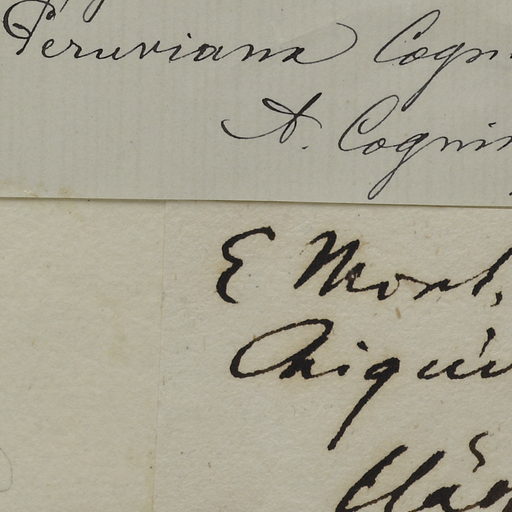 Peruviana Cogn
A. Cogni
E Mont.
Chiqui